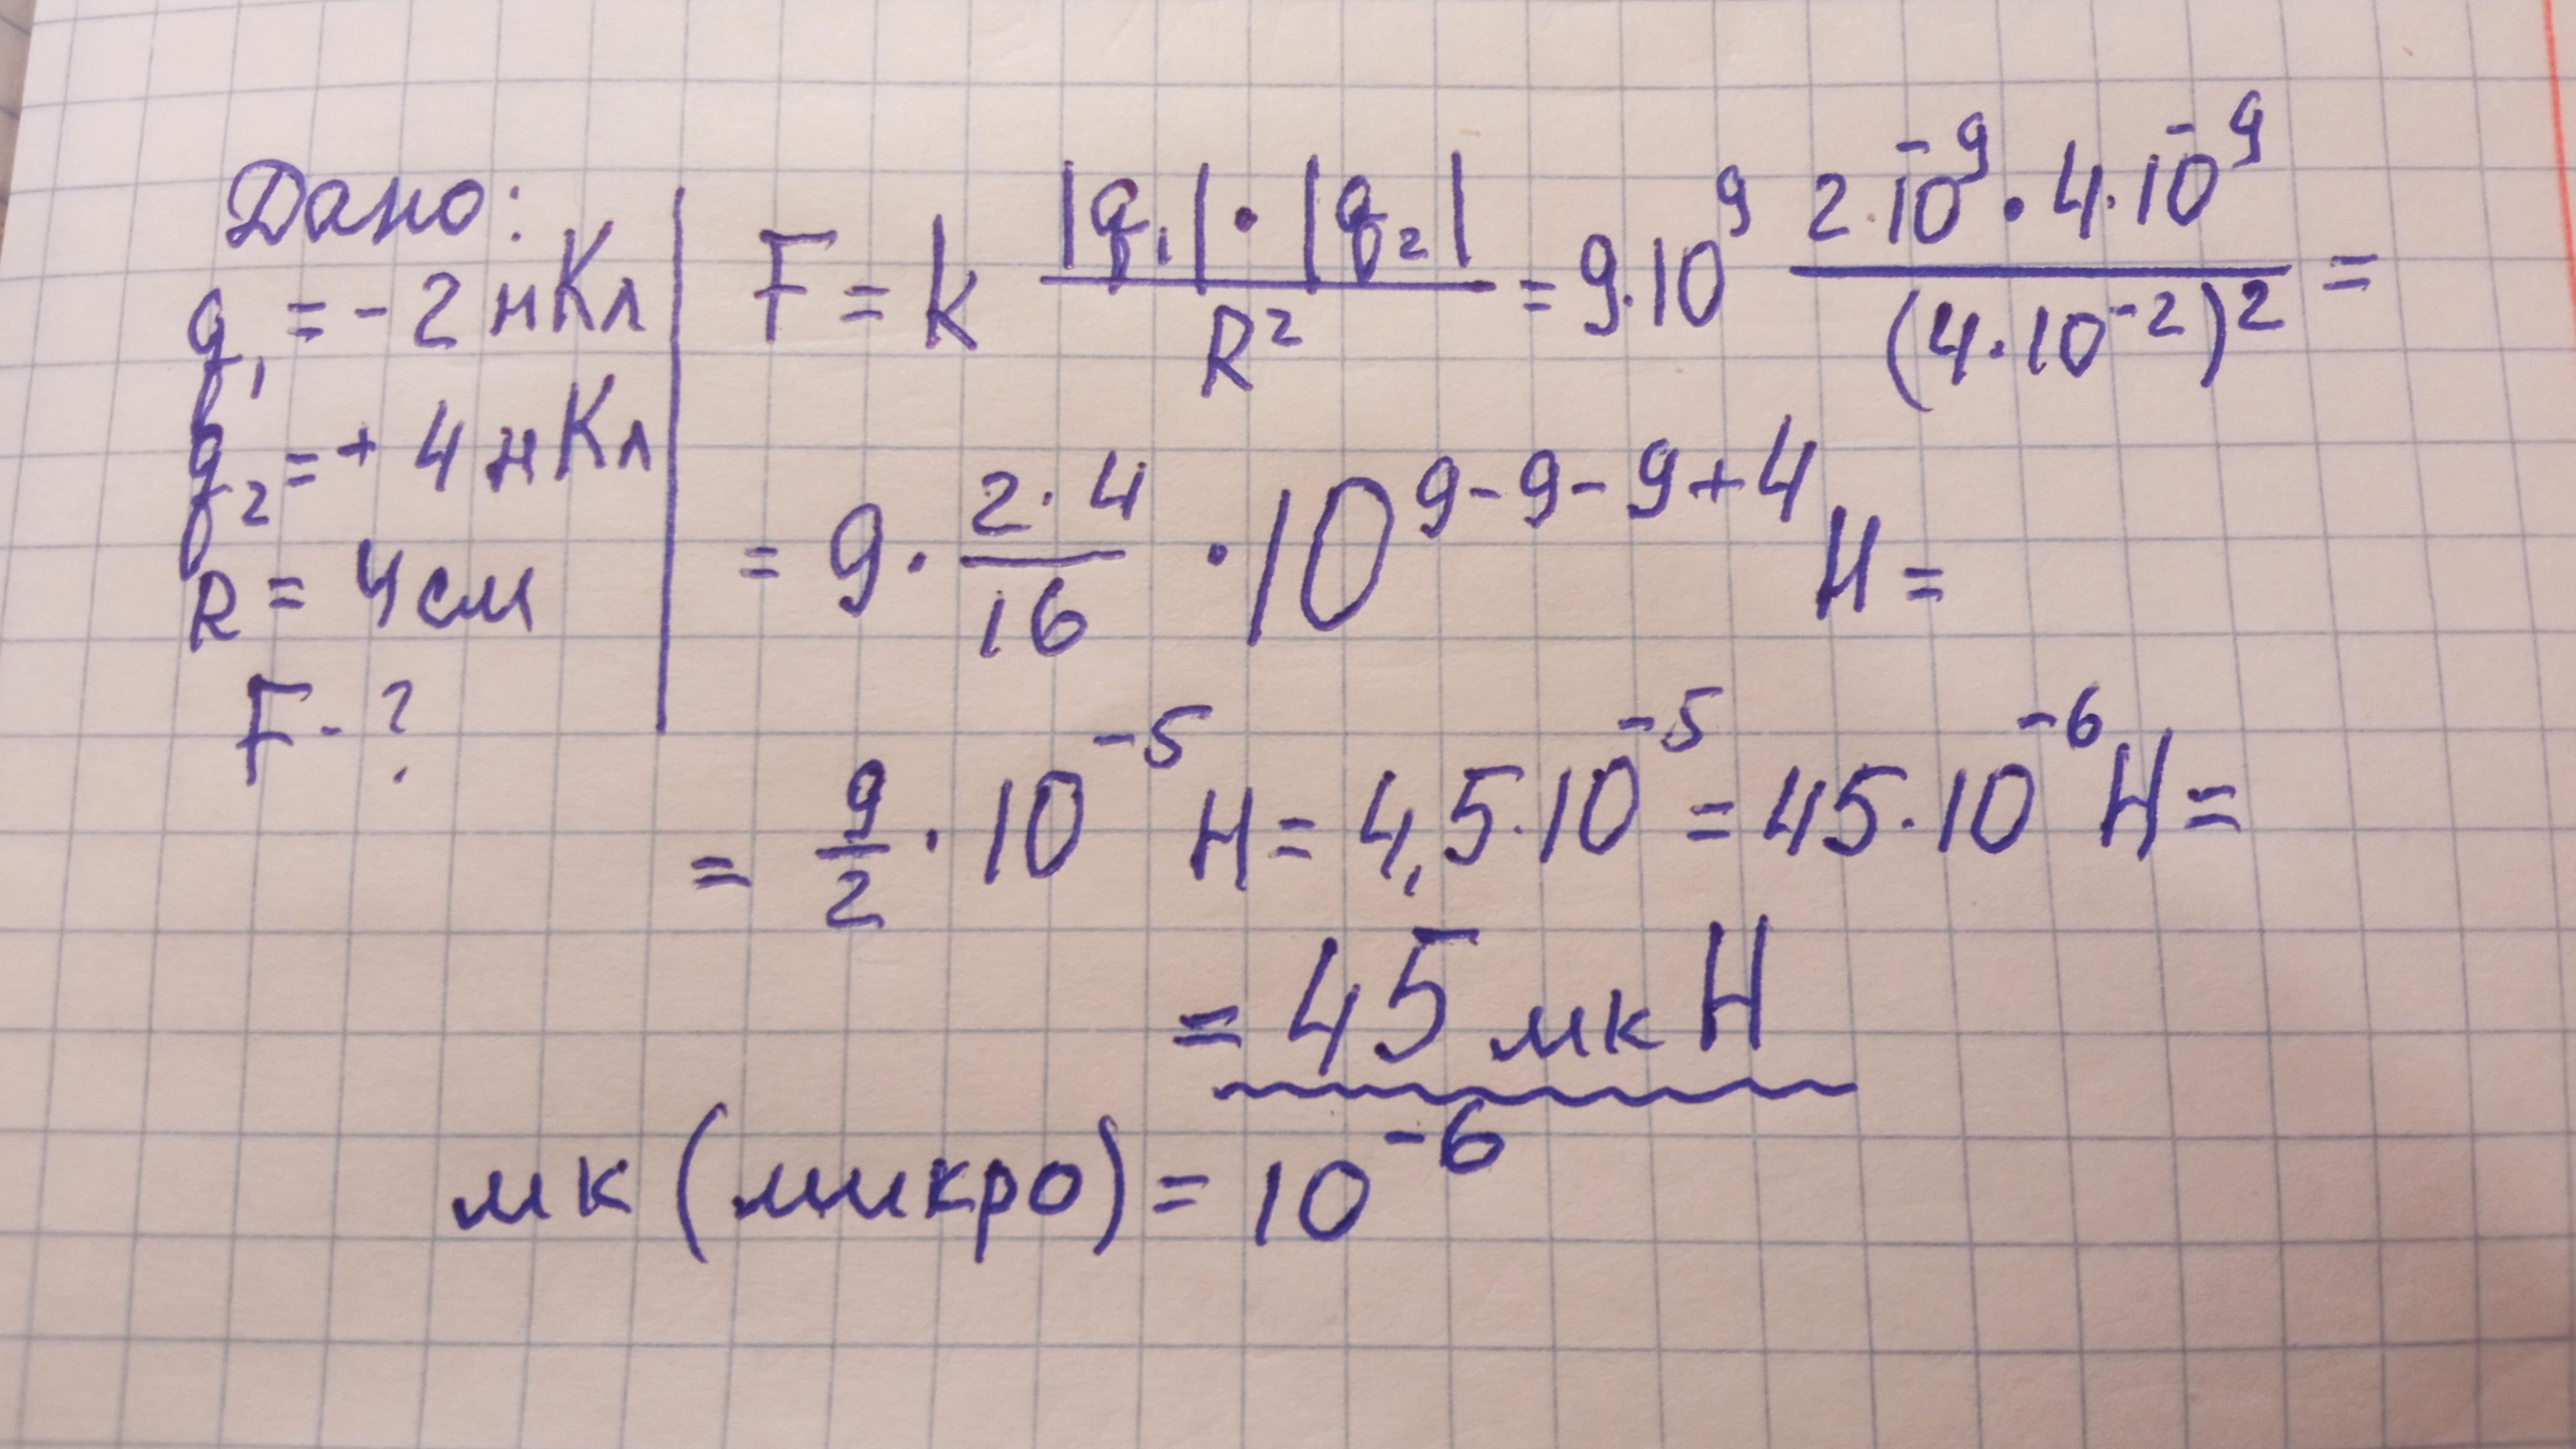 Дано:
q₁ = - 2 нКл
q₂ = + 4 нКл
R = 4 см
F - ?
F = k |q₁| · |q₂| / R² = 9·10⁹ 2·10⁻⁹ · 4·10⁻⁹ / (4·10⁻²)² =
= 9 · 2·4 / 16 · 10⁹⁻⁹⁻⁹⁺⁴ Н =
= 9/2 · 10⁻⁵ Н = 4,5·10⁻⁵ = 45·10⁻⁶ Н =
= 45 мкН
мк (микро) = 10⁻⁶